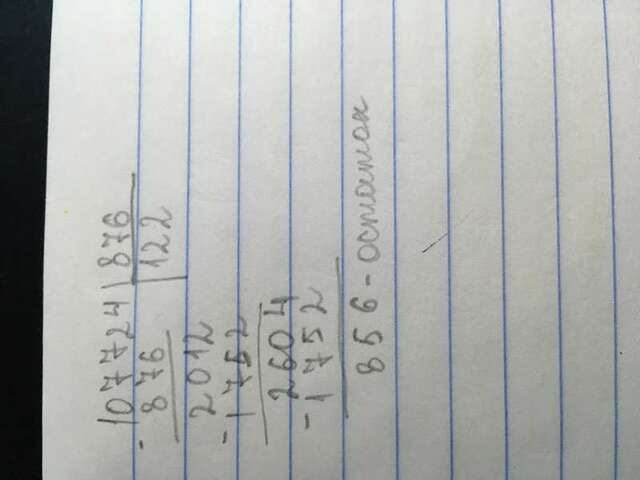 107724 | 876
- 876 | 122
2012
- 1752
2604
- 1752
856 - остаток